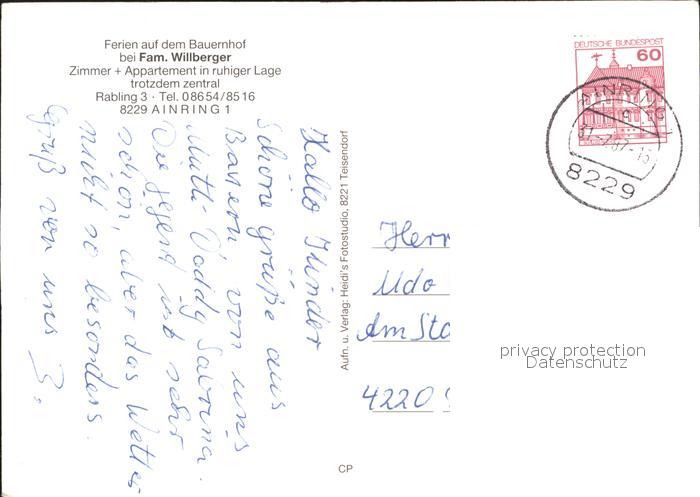 Ferien auf dem Bauernhof
bei Fam. Willberger
Zimmer + Appartement in ruhiger Lage
trotzdem zentral
Rabling 3 · Tel. 08654/8516
8229 AINRING 1
Hallo Kinder
Schöne grüße aus
Bayern, von uns
Mutti Daddy Sabrina.
Die gegend ist sehr
schön, aber das Wetter
nicht so besonders.
Gruß von uns 3.
Aufn. u. Verlag: Heidi's Fotostudio, 8221 Teisendorf
CP
DEUTSCHE BUNDESPOST
60
AINRING
8229
Herr
Udo
Am Sta
4220
privacy protection
Datenschutz